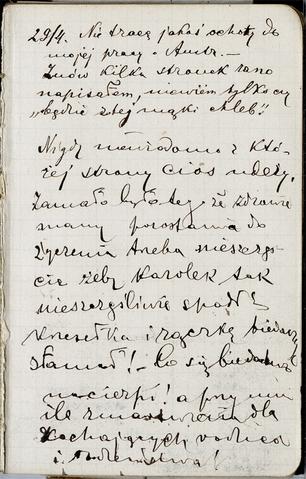 29/4. Nie tracę jakoś ochoty do
mojej pracy o Austr. —
Znów kilka stronek rano
napisałem, niewiem tylko czy
„będzie z tej mąki chleb".
Nigdy niewiadomo z któ-
rej strony cios uderzy.
Zamało było tego że zdrowie
mamy pozostawia do
życzenia trzeba nieszczę-
ścia żeby Karolek tak
nieszczęśliwie spadł z
krzesełka i rączkę biedac
złamał! — Co się biedac
nacierpi! a przy nim
ile zmartwienia dla
kochających rodzica
i rodzeństwa!